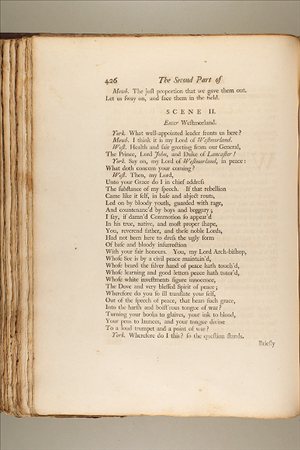 426 The Second Part of
Mowb. The just proportion that we gave them out.
Let us sway on, and face them in the field.
SCENE II.
Enter Westmorland.
York. What well-appointed leader fronts us here?
Mowb. I think it is my Lord of Westmorland.
West. Health and fair greeting from our General,
The Prince, Lord John, and Duke of Lancaster!
York. Say on, my Lord of Westmorland, in peace:
What doth concern your coming?
West. Then, my Lord,
Unto your Grace do I in chief address
The substance of my speech. If that rebellion
Came like it self, in base and abject routs,
Led on by bloody youth, guarded with rage,
And countenanc'd by boys and beggery;
I say, if damn'd Commotion so appear'd
In his true, native, and most proper shape,
You, reverend father, and these noble Lords,
Had not been here to dress the ugly form
Of base and bloody insurrection
With your fair honours. You, my Lord Arch-bishop,
Whose See is by a civil peace maintain'd,
Whose beard the silver hand of peace hath touch'd,
Whose learning and good letters peace hath tutor'd,
Whose white investments figure innocence,
The Dove and very blessed Spirit of peace;
Wherefore do you so ill translate your self,
Out of the speech of peace, that bears such grace,
Into the harsh and boist'rous tongue of war?
Turning your books to glaives, your ink to blood,
Your pens to launces, and your tongue divine
To a loud trumpet and a point of war?
York. Wherefore do I this? so the question stands.
Briefly